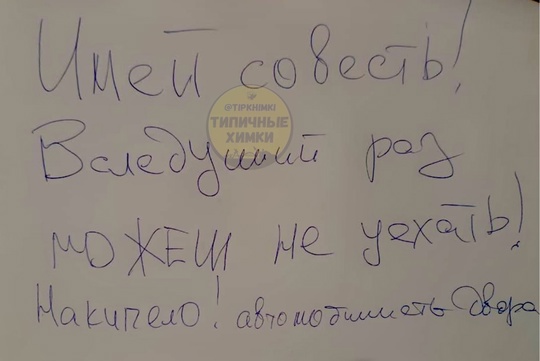 Имей совесть!
@TIPKHIMKI
ТИПИЧНЫЕ
ХИМКИ
Вследуший раз
можеш не уехать!
Накипело! автомобилисть двора